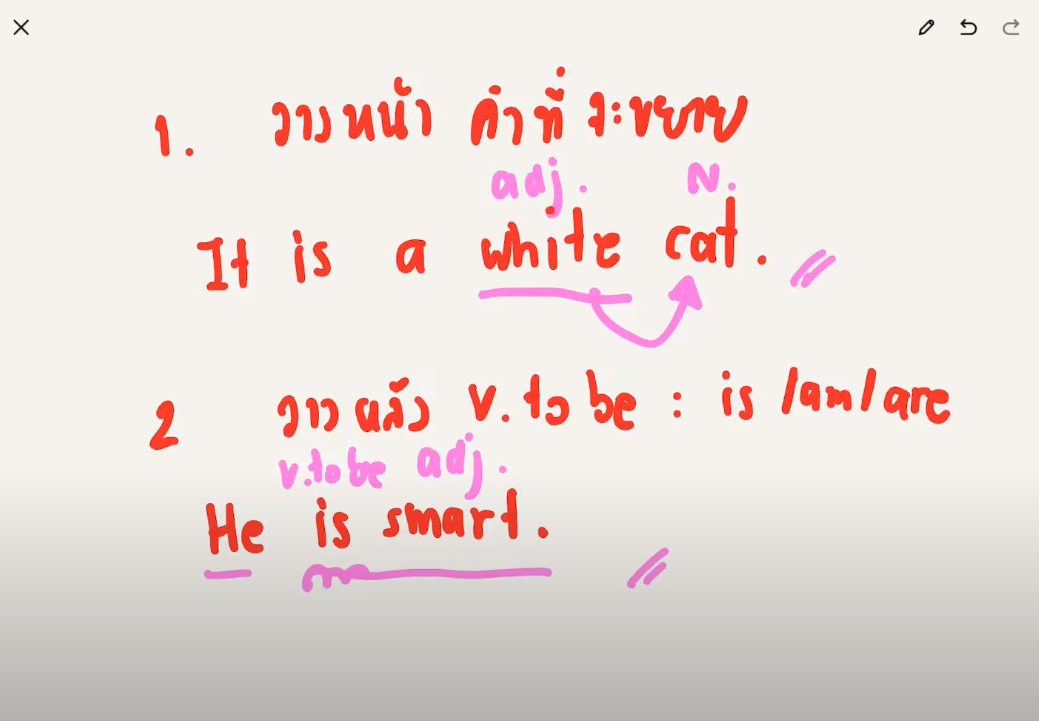 1. วางหน้า คำที่ จะขยาย
adj. N.
It is a white cat.
2 วางหลัง v.to be : is /am/are
v.to be adj.
He is smart.